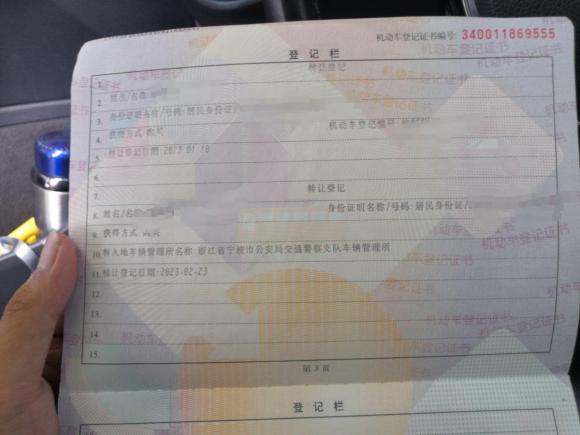 机动车登记证书编号: 340011869555
登记栏
1. 转让登记
2. 姓名/名称
3. 身份证明名称/号码:居民身份证/
4. 获得方式:购买 机动车登记编号:
5. 转让登记日期:2023-01-19
6.
7. 转让登记
8. 姓名/名 身份证明名称/号码:居民身份证/
9. 获得方式:购买
10. 转入地车辆管理所名称:浙江省宁波市公安局交通警察支队车辆管理所
11. 转让登记日期:2023-02-23
12.
13.
14.
15.
第3页
登记栏